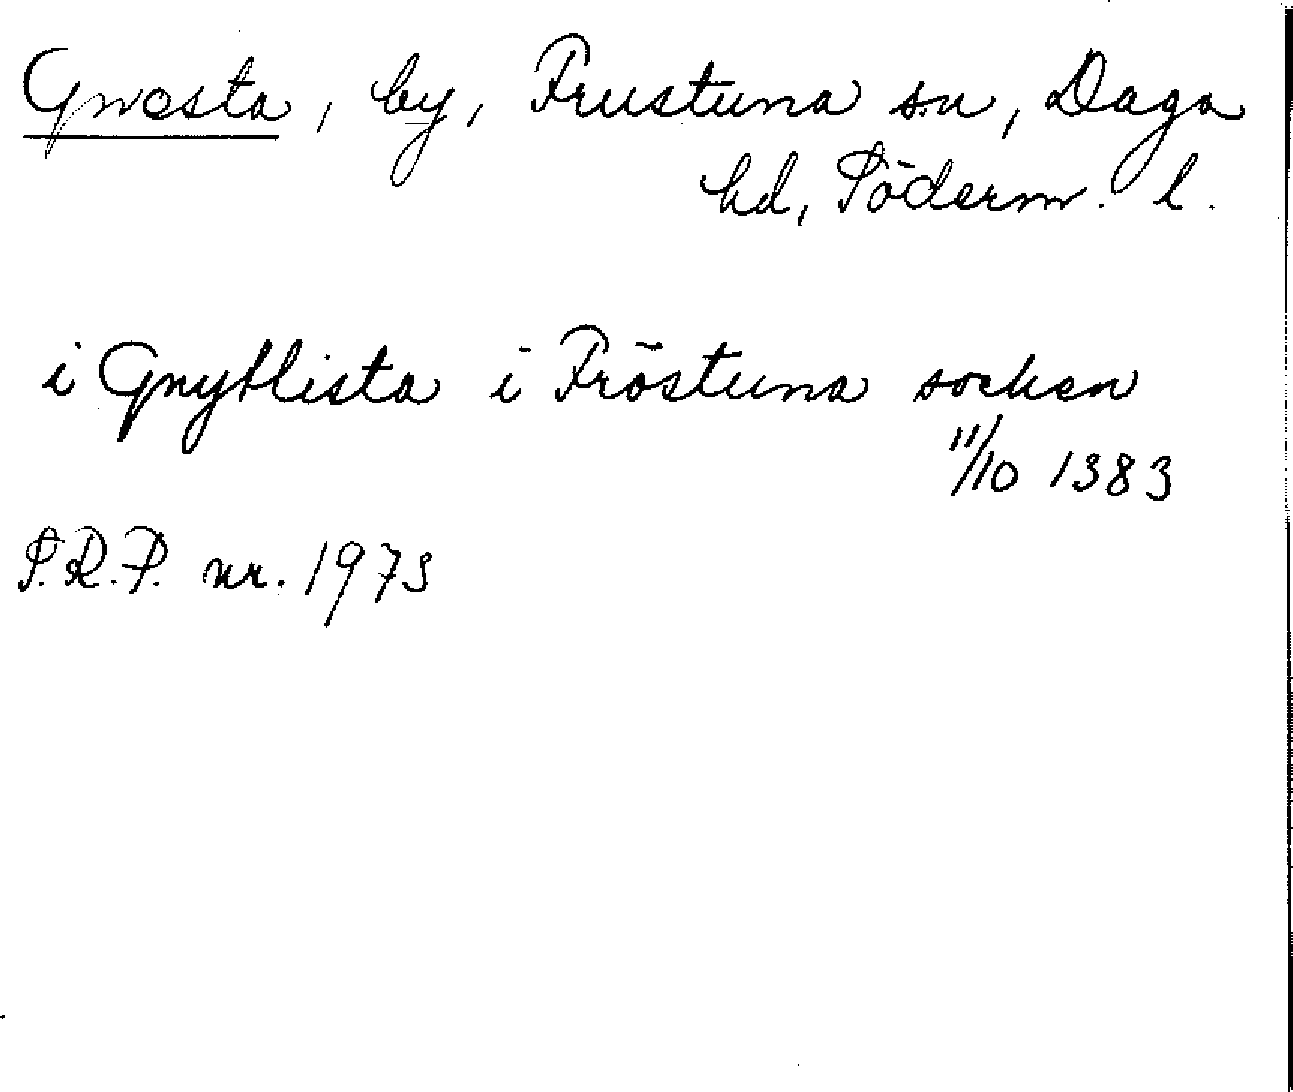 Gnesta, by, Frustuna sn, Daga
hd, Söderm. l.
i Gnytlista i Fröstuna socken
11/10 1383
S.R.P. nr. 1973